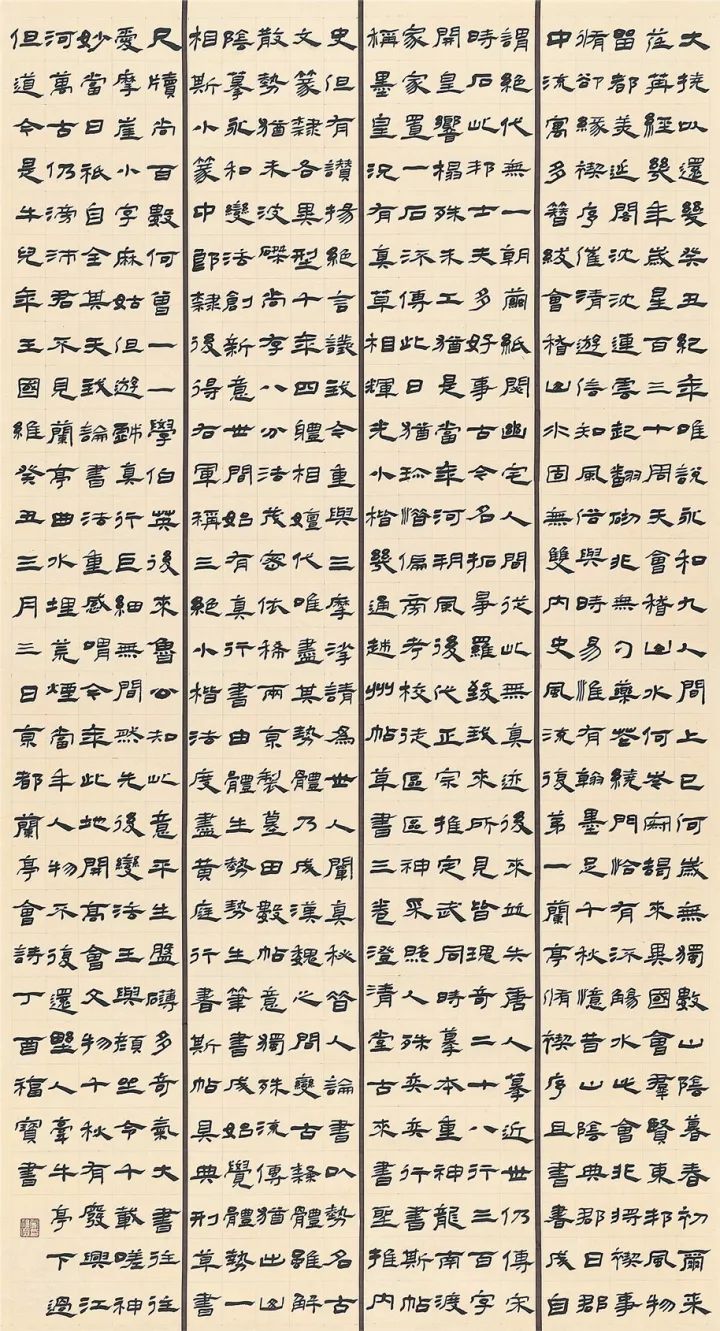 大撓以還幾癸丑紀年唯說永和九人間上巳何歲無獨數山陰暮春初爾來
荏苒經幾年歲星百三十周天會稽山水何岑寂朅來異國會羣賢東邦風物
留都美延閣沈沈連雲起翻砌非無勺藥花繞門恰有流觴水此會非將禊事
脩卻緣禊序催清遊信知風俗與時易惟有翰墨足千秋憶昔山陰典郡日郡
中流寓多簪紱會稽山水固無雙內史風流復第一蘭亭脩禊序且書書成自
謂絕代無一朝繭紙閟幽宅人間從此無真迹後來並失唐人摹近世仍傳宋
時石此邦士夫多好事古今名拓爭羅致我來所見皆瑰奇二十八行三百字
開皇響榻殊未工猶是當年河朔風後代正宗推定武同時摹本重神龍南渡
家家置一石流傳此日猶珍惜偏旁考校徒區區神采照人殊奕奕行書斯帖
稱墨皇況有真草相輝光小楷幾通越州帖草書三卷澄清堂古來書聖推內
史但有讚揚絕言議我今重與三摩挲請為世人闡真秘昔人論書以勢名古
文篆隸各異型千年四體相嬗代唯盡其勢體乃成漢魏之間變古隸體雖解
散勢猶未波磔尚存八分法茂密依稀兩京製墓田數帖意獨殊流傳猶出山
陰摹永和變法創新意世間始有真行書由體生勢勢生筆書成始覺體勢一
相斯小篆中郎隸後得右軍稱三絕小楷法度盡黃庭行書斯帖具典刑草書
尺牘尚百數何曾一一學伯英後來魯公知此意平生盤礴多奇氣大書往往
愛摩崖小字麻姑但遊戲真行巨細無間然先後變法王與顏坐令千載嗟神
妙當日祇自全其天我論書法重感喟今年此地開高會文物千秋有廢興江
河萬古仍滂沛君不見蘭亭曲水埋荒煙當年人物不復還野人牽牛亭下過
但道今是牛兒年王國維癸丑三月三日京都蘭亭會詩丁酉福寶書